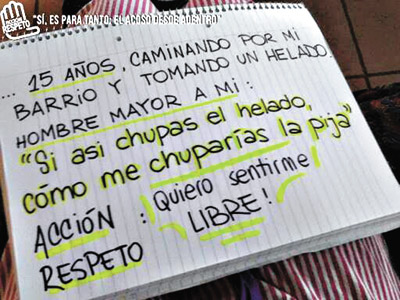 ACCIÓN
RESPETO
"SÍ, ES PARA TANTO: EL ACOSO DESDE ADENTRO"
... 15 AÑOS, CAMINANDO POR MI
BARRIO Y TOMANDO UN HELADO.
HOMBRE MAYOR A MI:
"Si asi chupas el helado,
cómo me chuparías la pija"
ACCIÓN : Quiero sentirme
RESPETO LIBRE!